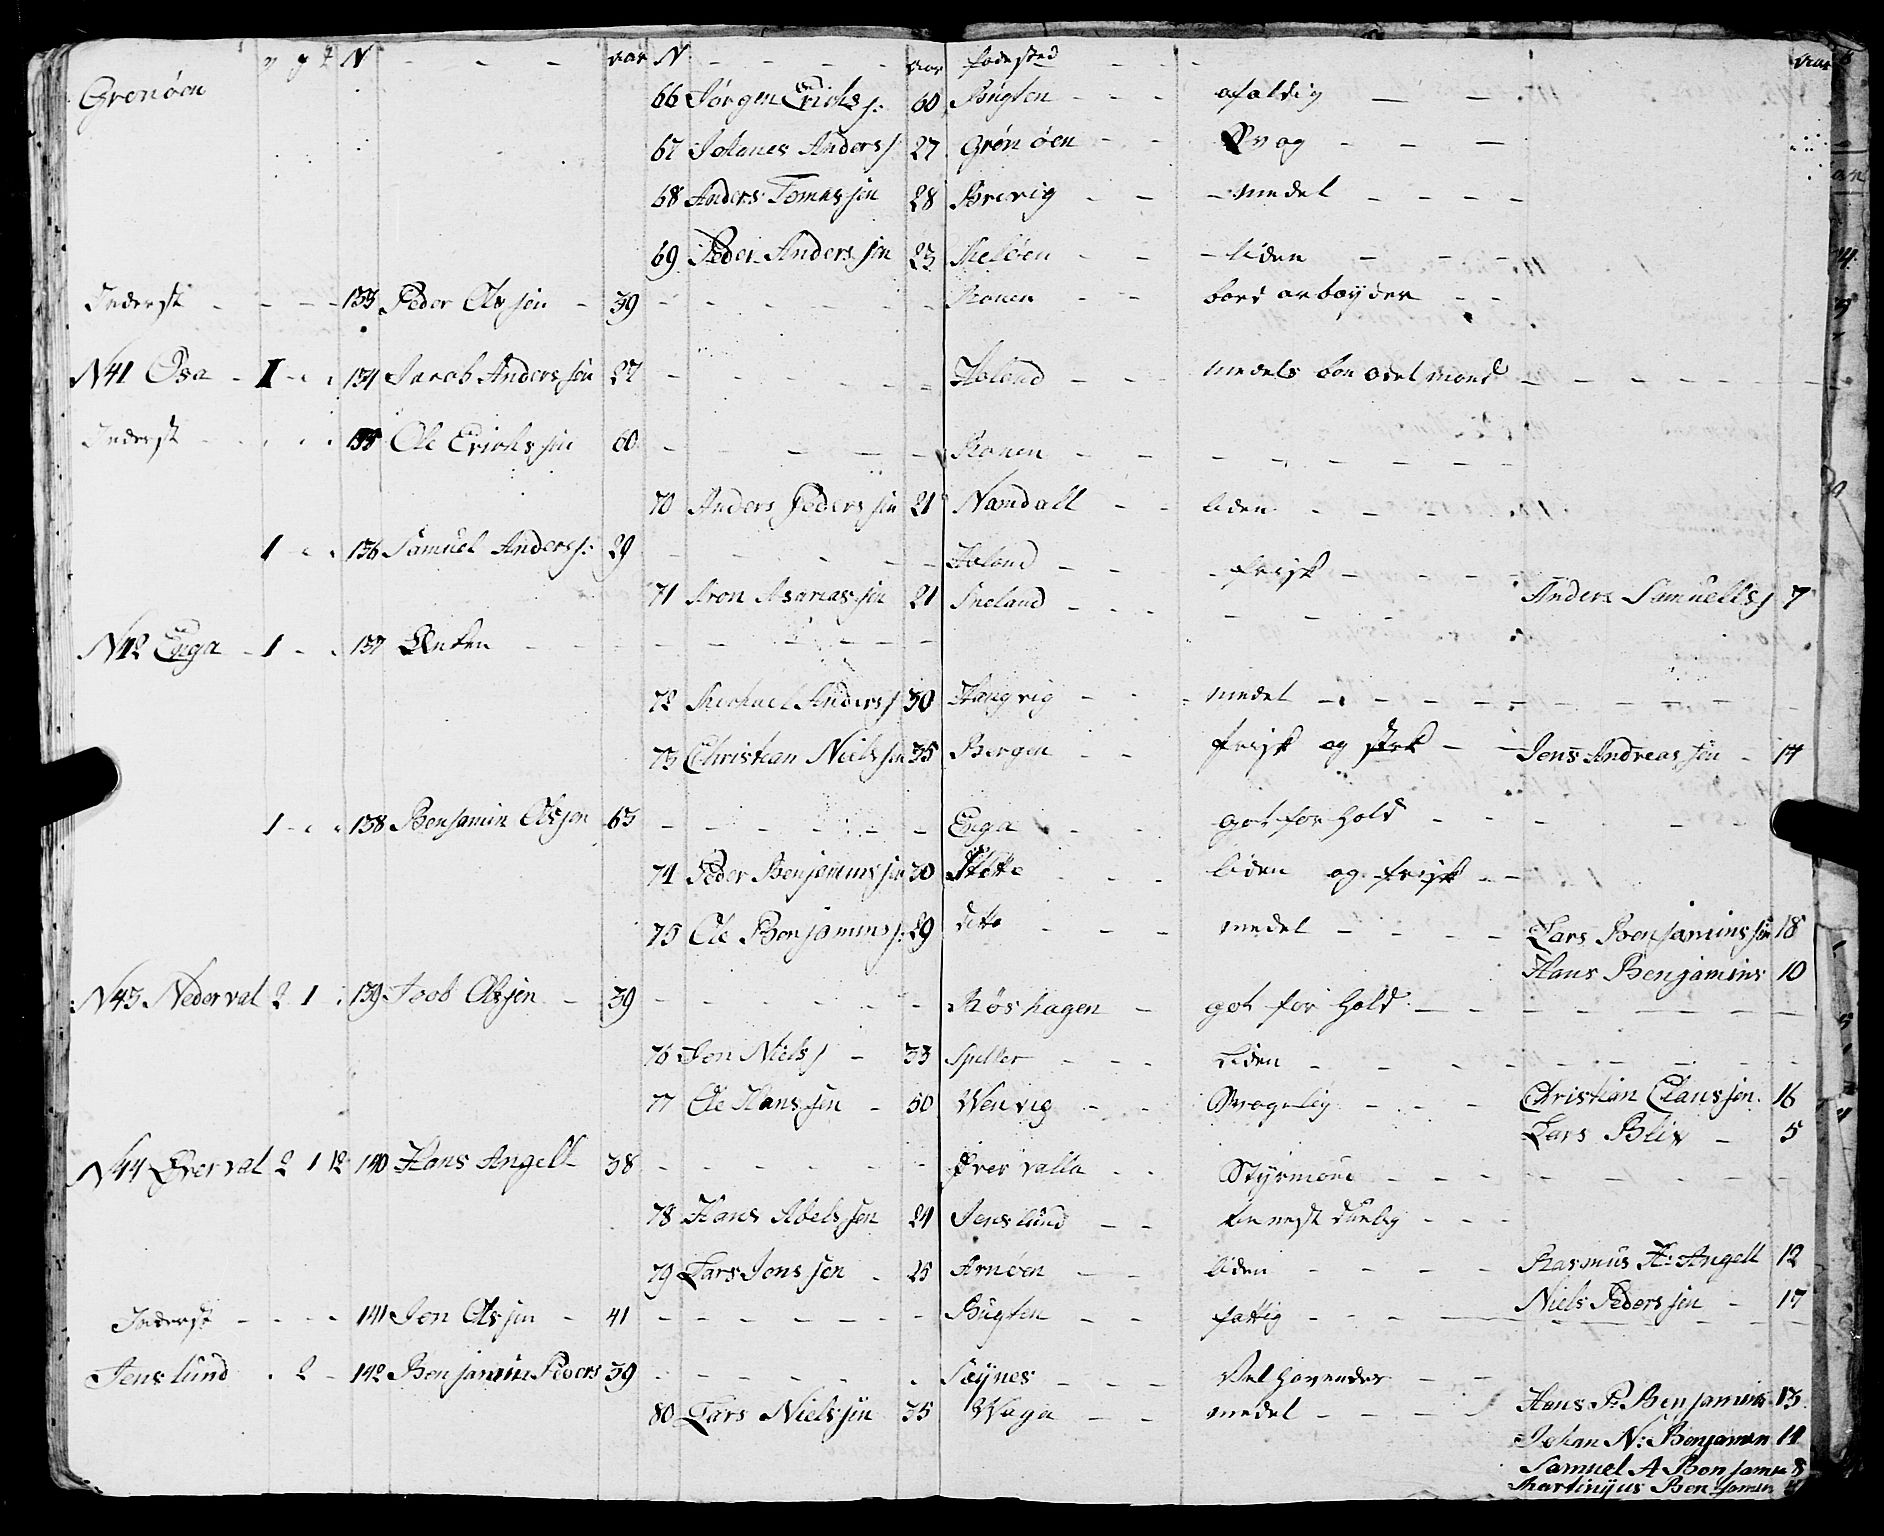 v g q N - - - aar N - - - - aar fødested - - - aar
Grønøen 66 Jørgen Erichs: 60 Bugten - - - afaldig - -
67 Johanes Anders 27 Grønøen - - Svag - - -
68 Anders Tomessen 28 Brevig - - - medel - - - -
69 Peder Anderssen 23 Meløen - - - liden - - -
Inderst - - - - 133 Peder Olssen - 39 - - - - - - Ronen - - bord arbøyder - -
N41 Osa - 1 - - - 134 Jacob Anderssen 27 - - - - - - Holand - - - medels bon odelmand - - - -
Inderst - - - - 135 Ole Erichssen 60 - - - - - - Ronen - - - - - - - -
70 Anders Pederssen 21 Namdall - - liden - - - -
1 - - 136 Samuel Anders: 29 - - - - - Holand - - - - frisk - - - -
71 Aron Asariassen 21 Meland - - - - - - - Anders Samuells 7
N42 Enga - 1 - - 137 Enken - - - - - - - -
72 Michael Anders 30 Haugvig - - - medel - - - - -
73 Christian Nielssen 35 Bergen - - frisk og sterk - - Jens Andreassen - 17
1 - - - 138 Benjamin Olssen 63 - - - - - - Enga - - got forhold - - - -
74 Peder Benjaminssen 30 Ditto - - - liden og frisk - -
75 Ole Benjamins: 29 ditto - - - medel - - - - Lars Benjaminssen 18
Hans Benjamins 10
N43 Nederval 2 1 - 139 Joob Olssen - 39 - - - - - - Røshagen - got for hold - - - - -
76 Jon Niels - 33 Speller - - - Liden - - - -
77 Ole Hanssen - 50 Wenvig - - Svagelig - - - Christian Claussen 16
Lars Blix - 5
N44 Øverval 2 1 12 140 Hans Angell 38 - - - - - - Øver valla - - Styrmand - - - - -
78 Hans Abelssen 24 Jenslund - - Tienest duelig - - -
79 Lars Jonssen - 25 Arnøen - - liden - - - - Rasmus H: Angell 12
Niels Pederssen - 17
Inderst - - - - 141 Jon Olssen - 41 - - - - - - Bugten - - fattig - - - -
Jenslund - 2 - 142 Benjamin Peders 39 - - - - - - Søynes - - - Velhavender - -
80 Lars Nielssen 35 Waga - - medel - - - - Hans P: Benjamins 13
Johan N: Benjamin 14
Samuel A Benjamin 8
Martinijus Benjamin